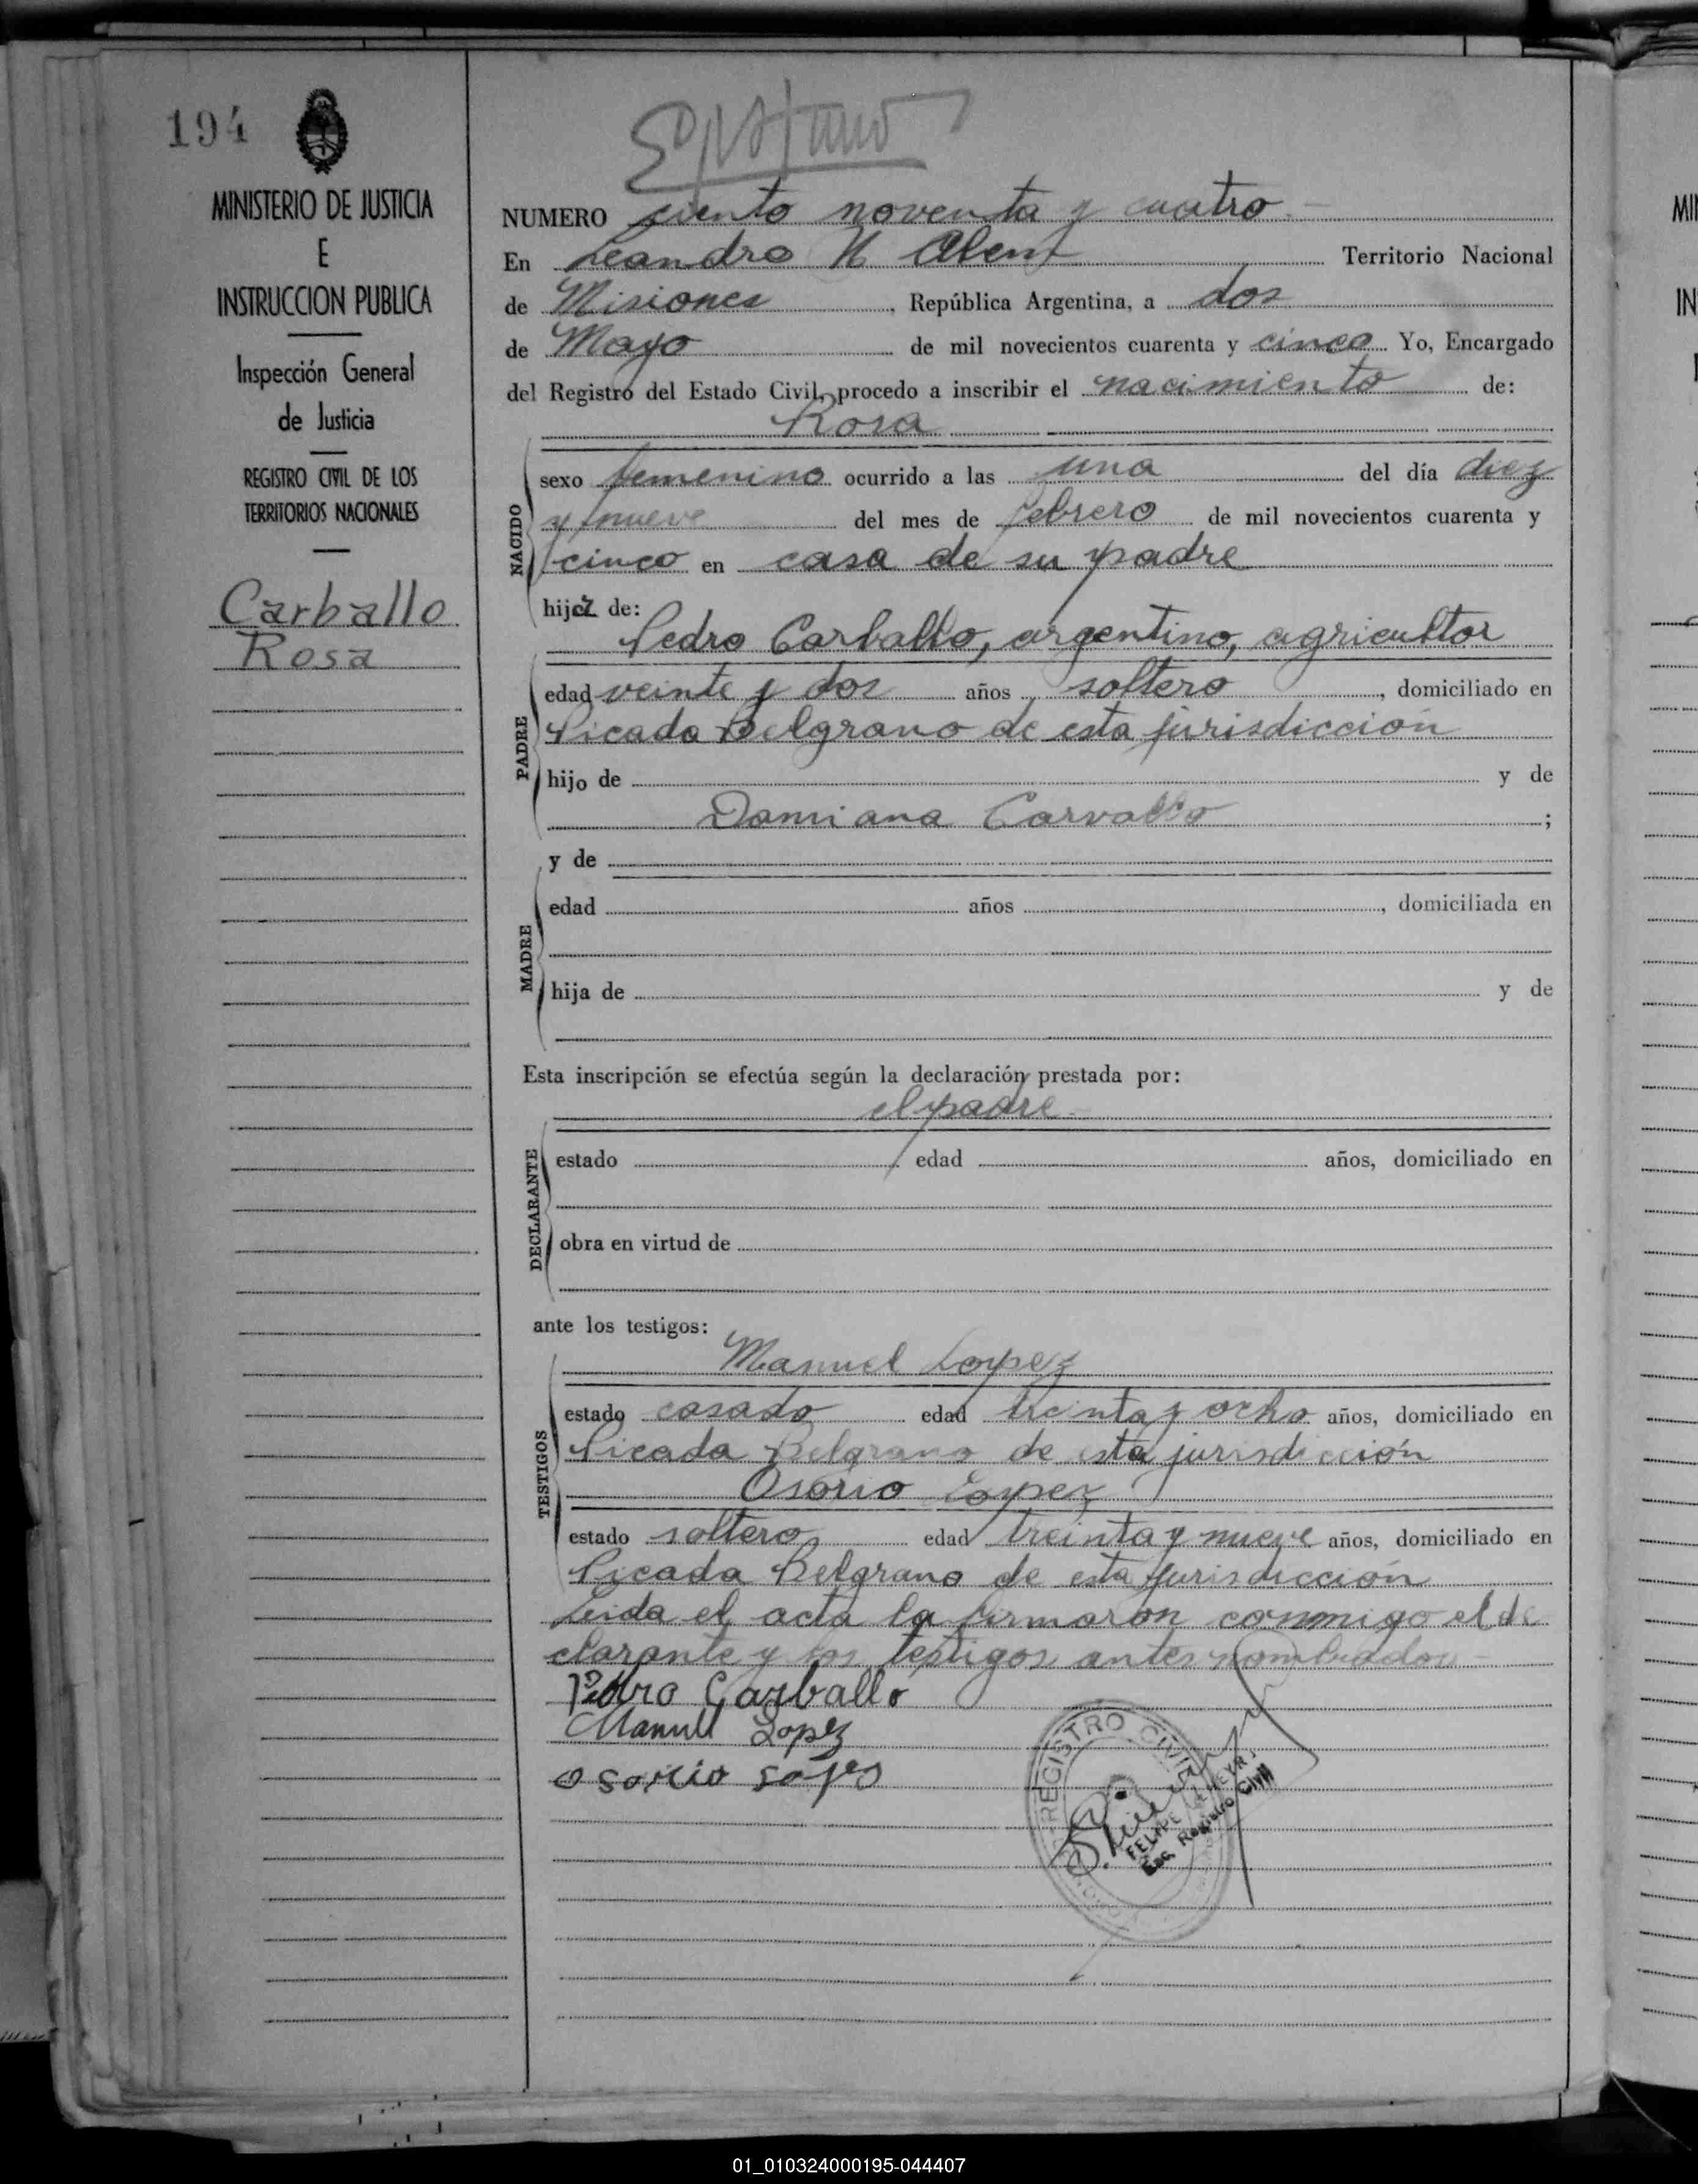 194
MINISTERIO DE JUSTICIA
E
INSTRUCCION PUBLICA
Inspección General
de Justicia
REGISTRO CIVIL DE LOS
TERRITORIOS NACIONALES
Carballo
Rosa
NUMERO ciento noventa y cuatro.-
En Leandro N Alem Territorio Nacional
de Misiones, República Argentina, a dos
de Mayo de mil novecientos cuarenta y cinco Yo, Encargado
del Registro del Estado Civil, procedo a inscribir el nacimiento de:
Rosa
NACIDO
sexo femenino ocurrido a las una del día diez
y nueve del mes de febrero de mil novecientos cuarenta y
cinco en casa de su padre
hija de:
Pedro Carballo, argentino, agricultor
PADRE
edad veinte y dos años soltero, domiciliado en
Picada Belgrano de esta jurisdicción
hijo de y de
Damiana Carvallo;
y de
MADRE
edad años, domiciliada en
hija de y de
Esta inscripción se efectúa según la declaración prestada por:
el padre-
DECLARANTE
estado edad años, domiciliado en
obra en virtud de
ante los testigos:
Manuel Lopez
TESTIGOS
estado casado edad treinta y ocho años, domiciliado en
Picada Belgrano de esta jurisdicción
Osorio Lopez
estado soltero edad treinta y nueve años, domiciliado en
Picada Belgrano de esta jurisdicción
Leida el acta la firmaron conmigo el de
clarante y los testigos antes nombrados-
Pedro Carballo
Manuel Lopez
Osorio Lopes
REGISTRO CIVIL
FELIPE
Enc. Registro Civil
01_010324000195-044407